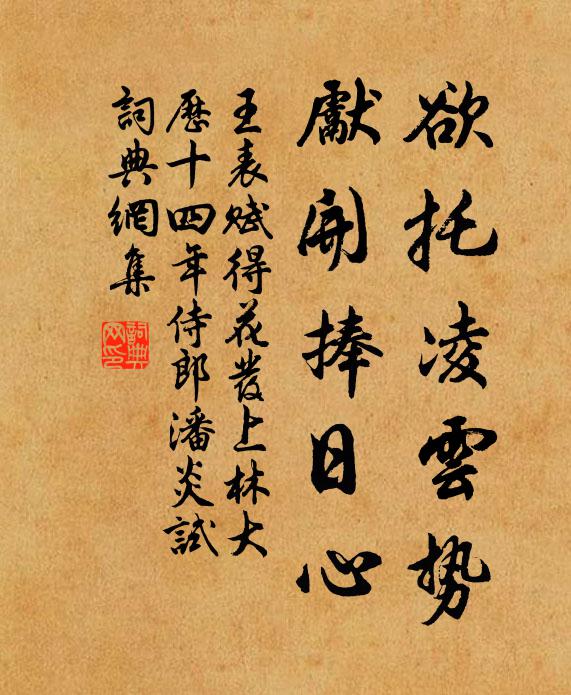 欲托凌雲势
獻開捧日心
王表赋得花發上林大
歷十四年侍郎潘炎試
詞典網集
詞典网印